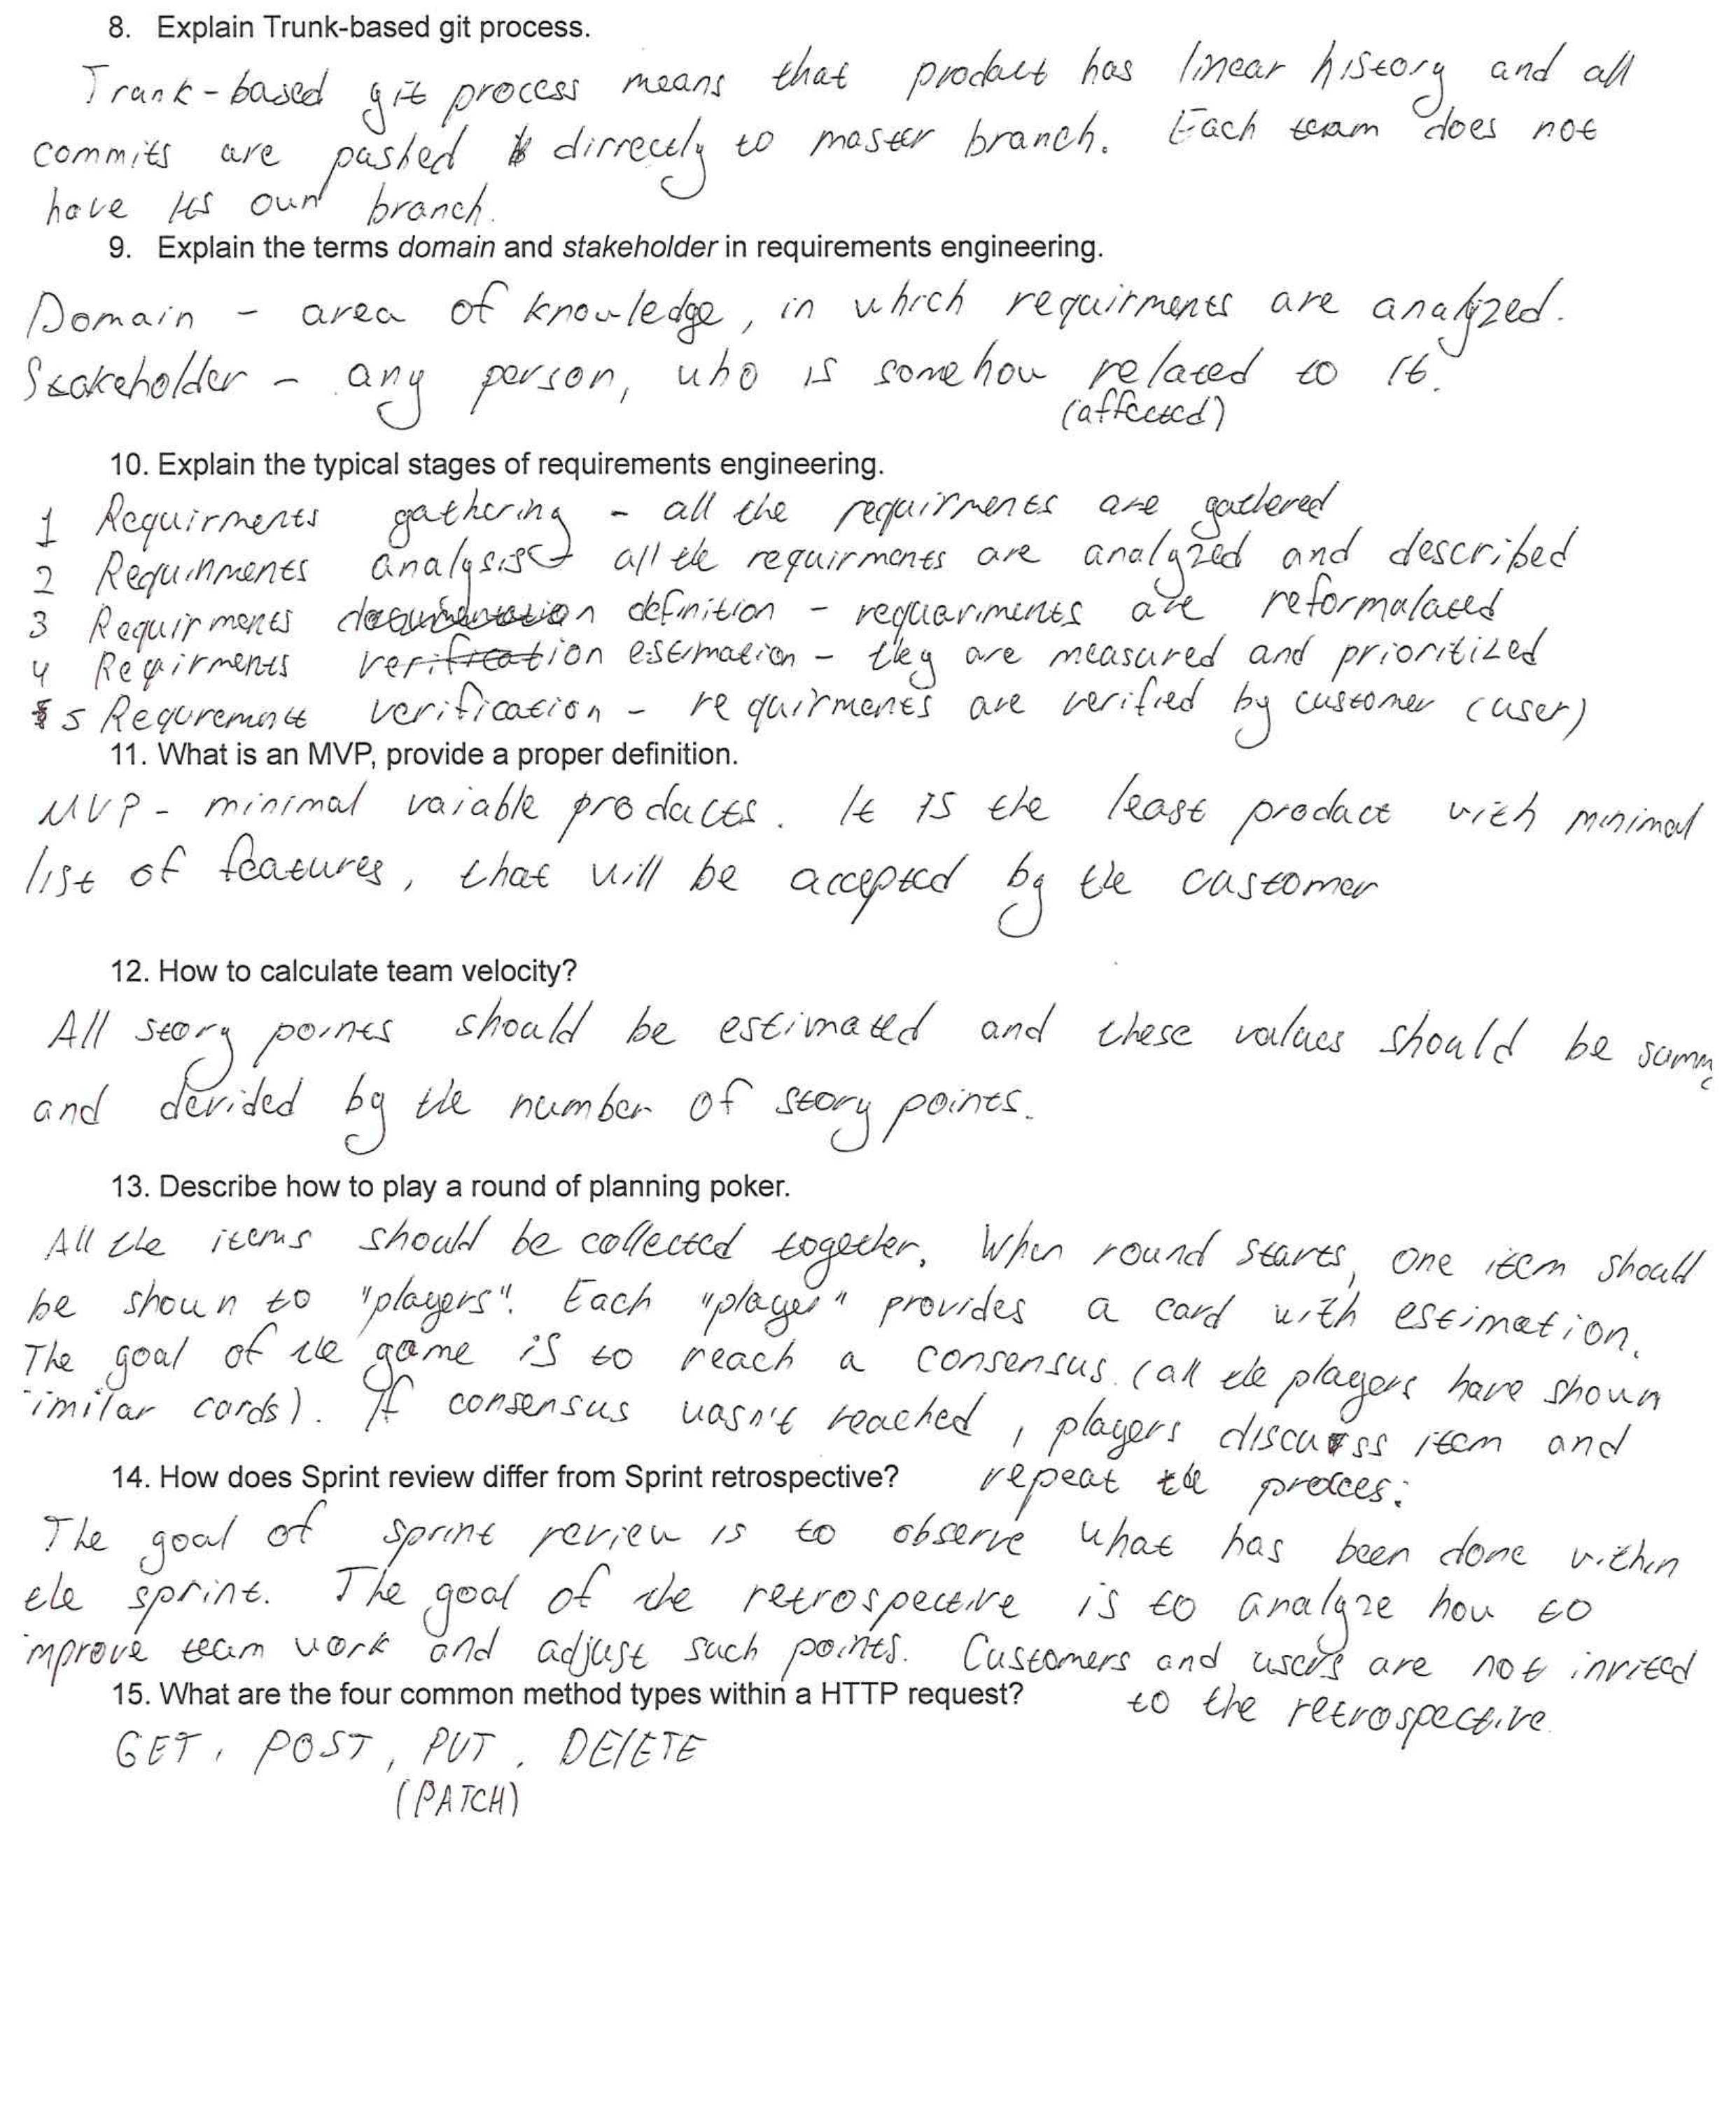 8. Explain Trunk-based git process.
Trunk-based git process means that product has linear history and all
commits are pushed dirrectly to master branch. Each team does not
have its own branch.
9. Explain the terms domain and stakeholder in requirements engineering.
Domain - area of knowledge, in which requirments are analyzed.
Stakeholder - any person, who is somehow related to it.
(affected)
10. Explain the typical stages of requirements engineering.
1 Requirments gathering - all the requirments are gathered
2 Requirnments analysis all the requirments are analyzed and described
3 Requirments documentation definition - requariments are reformulated
4 Reqirments verification estimation - they are measured and prioritized
5 Requrements verification - requirments are verified by customer (user)
11. What is an MVP, provide a proper definition.
MVP - minimal vaiable products. It is the least product with minimal
list of features, that will be accepted by the customer
12. How to calculate team velocity?
All story points should be estimated and these values should be summ
and devided by the number of story points.
13. Describe how to play a round of planning poker.
All the items should be collected together. When round starts, one item should
be shown to "players". Each "player" provides a card with estimation.
The goal of the game is to reach a consensus. (all the players have shown
imilar cards). If consensus wasn't reached, players discuss item and
repeat the procces.
14. How does Sprint review differ from Sprint retrospective?
The goal of sprint review is to observe what has been done within
the sprint. The goal of the retrospective is to analyze how to
improve team work and adjust such points. Customers and users are not invited
to the retrospective.
15. What are the four common method types within a HTTP request?
GET, POST, PUT, DELETE
(PATCH)